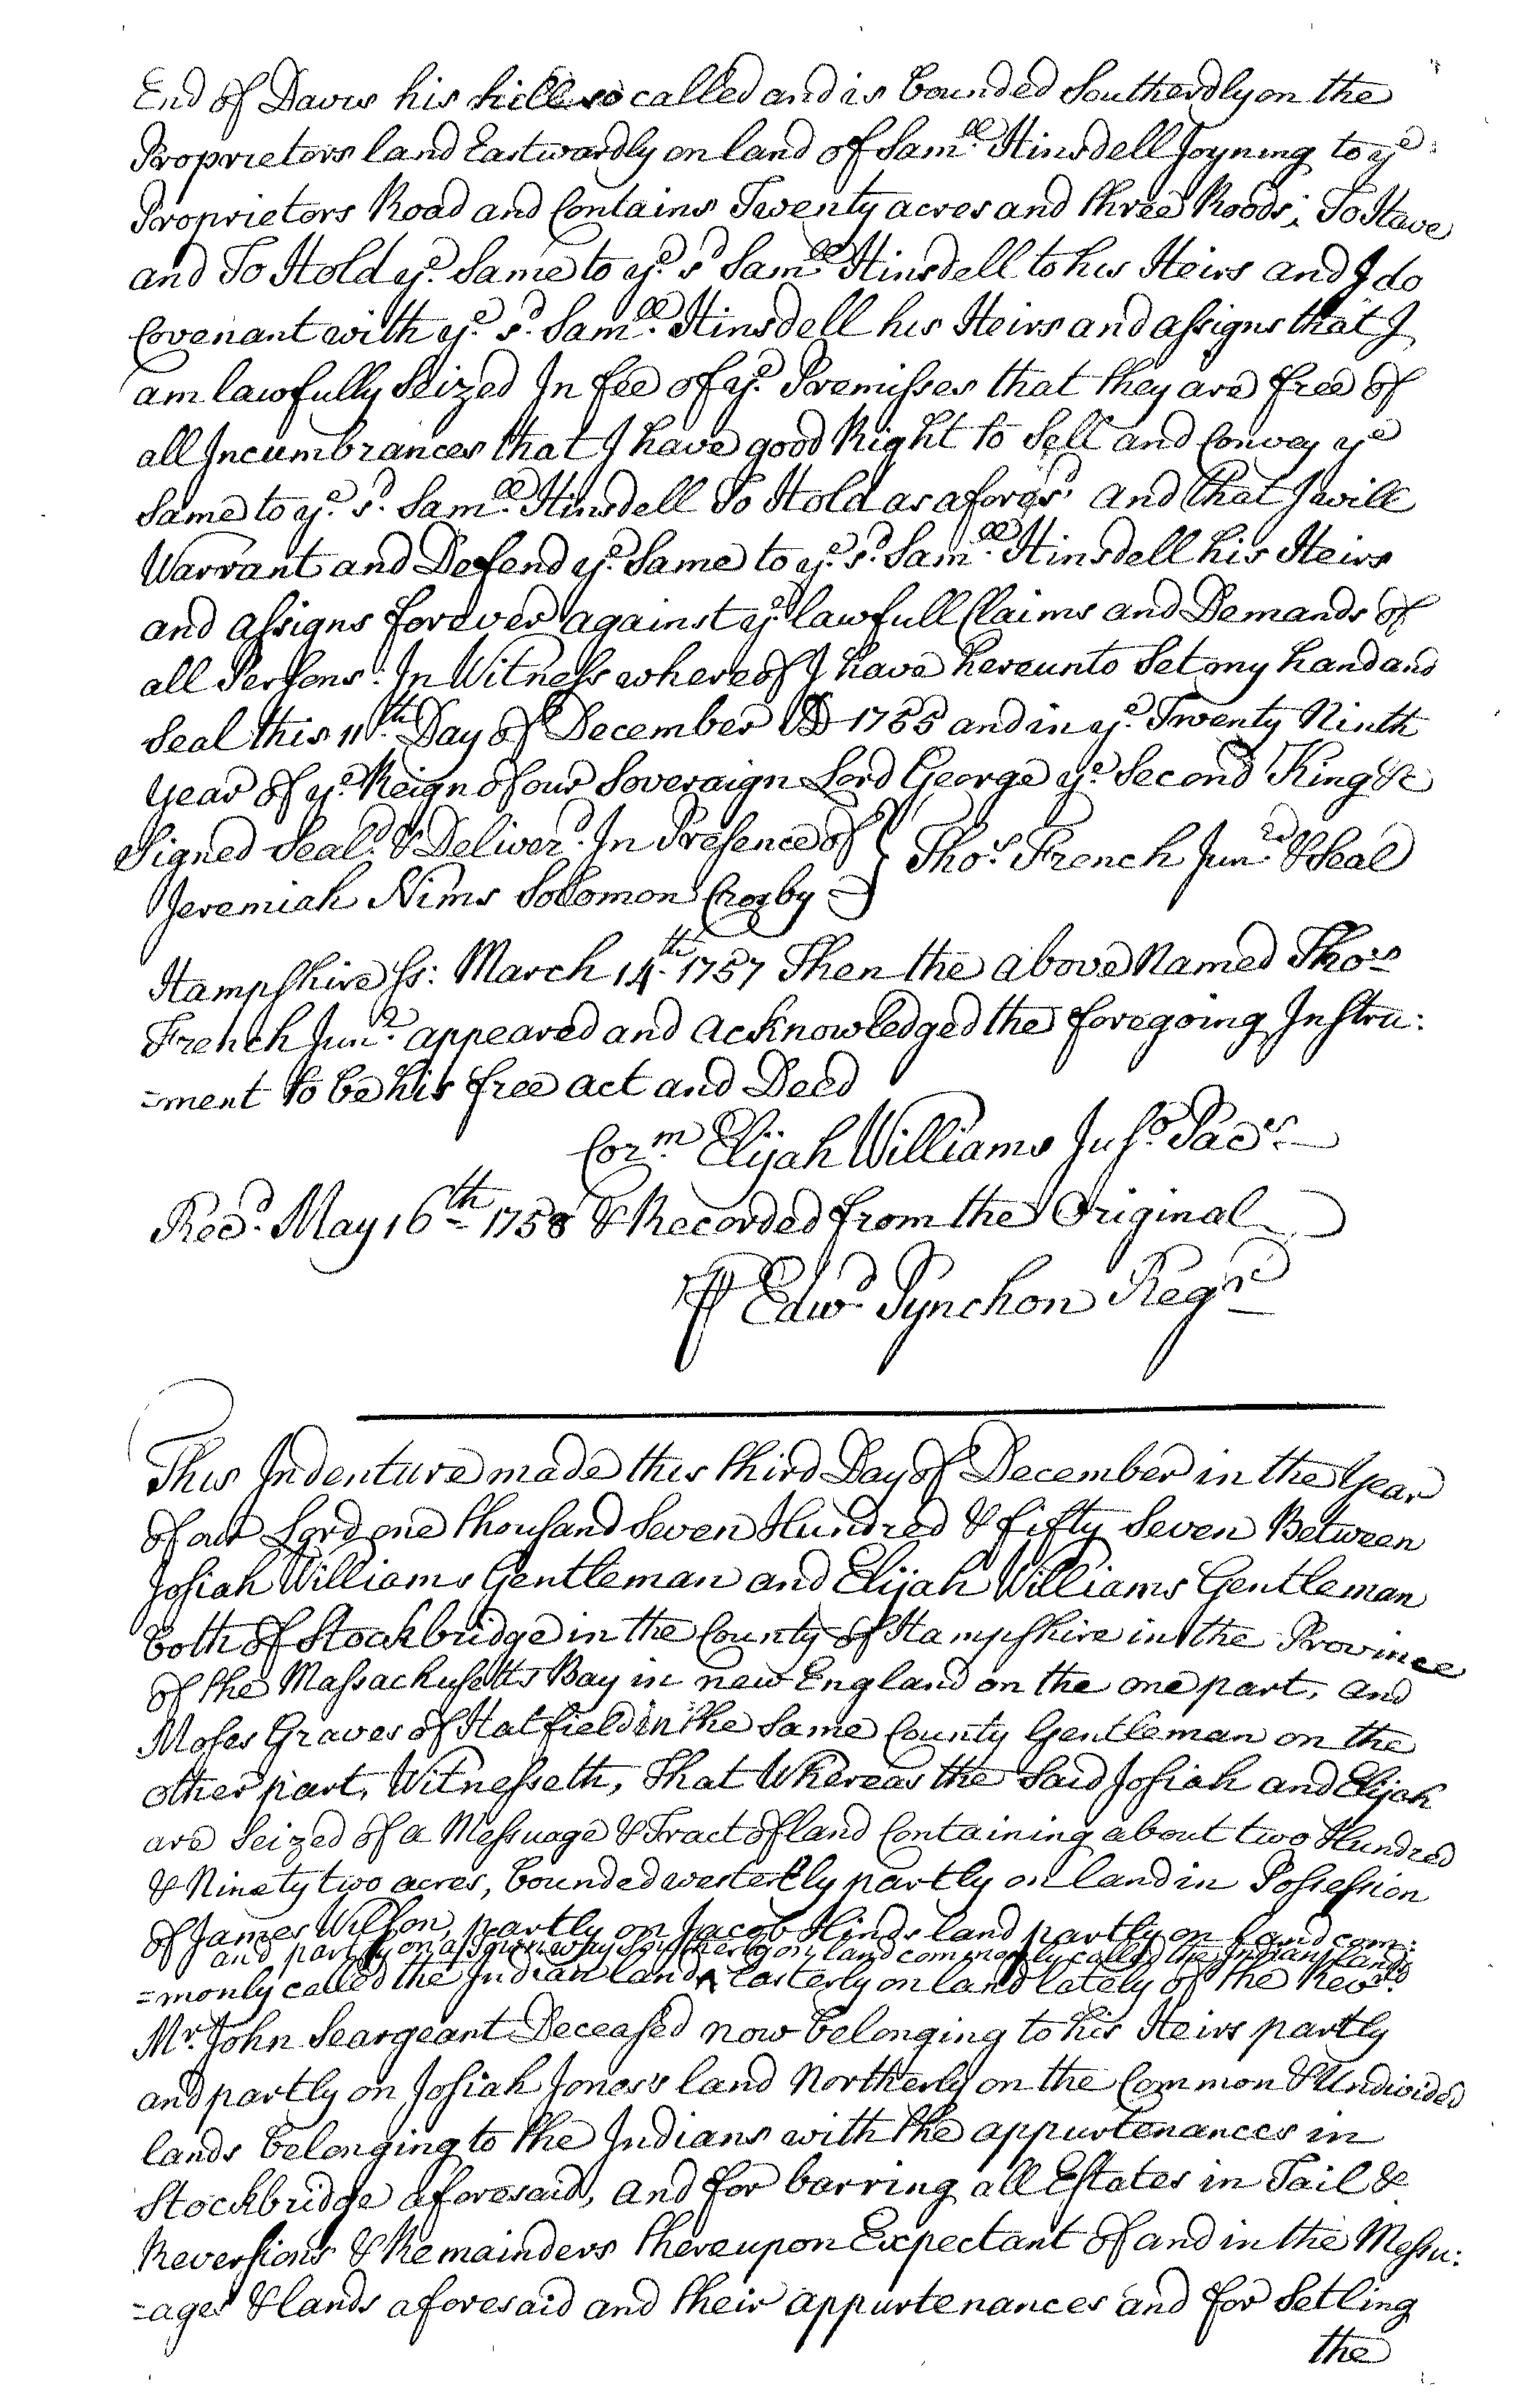 End of Davis his hill so called and is bounded Southerdly on the
Proprietors land Eastwardly on land of Sam.ll Hinsdell Joyning to ye:
Proprietors Road and Contains Twenty acres and three Roods; To Have
and To Hold ye. Same to ye. sd Sam.ll Hinsdell to his Heirs and I do
Covenant with ye. sd. Sam.ll Hinsdell his Heirs and assigns that I
am lawfully Seized In fee of ye. Premisses that they are free of
all Incumbrances that I have good Right to Sell and Convey ye
Same to ye. sd. Sam.ll Hinsdell To Hold as aforesd. and that I will
Warrant and Defend ye. Same to ye. sd. Sam.ll Hinsdell his Heirs
and assigns forever against ye. lawfull Claims and Demands of
all Persons. In Witness whereof I have hereunto Set my hand and
Seal this 11th. Day of December AD 1755 and in ye. Twenty Ninth
Year of ye. Reign of our Soveraign Lord George ye. Second King &c
Signed Seald. & Deliverd. In Presence of } Thos. French Junr. & Seal
Jeremiah Nims Solomon Crosby
Hampshire ss: March 14th. 1757 Then the above Named Thos
French Junr. appeared and acknowledged the foregoing Instru:
=ment to be his free act and Deed
Corm Elijah Williams Juso. Pacs.
Recd. May 16th 1758 & Recorded from the Original
P Edwd. Pynchon Regr
This Indenture made this third Day of December in the Year
of our Lord one thousand Seven Hundred & fifty Seven Between
Josiah Williams Gentleman and Elijah Williams Gentleman
both of Stockbridge in the County of Hampshire in the Province
of the Massachusetts Bay in new England on the one part, and
Moses Graves of Hatfield in the Same County Gentleman on the
other part, Witnesseth, That Whereas the Said Josiah and Elijah
are Seized of a Messuage & Tract of land Containing about two Hundred
& Ninety two acres, bounded westerly partly on land in Possession
of James Wilson, partly on Jacob Hinds land partly on land com:
and partly on a Southerly on land commonly called the Indian land
=monly called the Indian land ^ Easterly on land lately of the Revrd.
Mr. John Seargeant Deceased now belonging to his Heirs partly
and partly on Josiah Jones's land Northerly on the Common & Undivided
lands belonging to the Indians with the appurtenances in
Stockbridge aforesaid, and for barring all Estates in Tail &
Reversions & Remainders thereupon Expectant of and in the Messu:
=ages & lands aforesaid and their appurtenances and for Setling
the